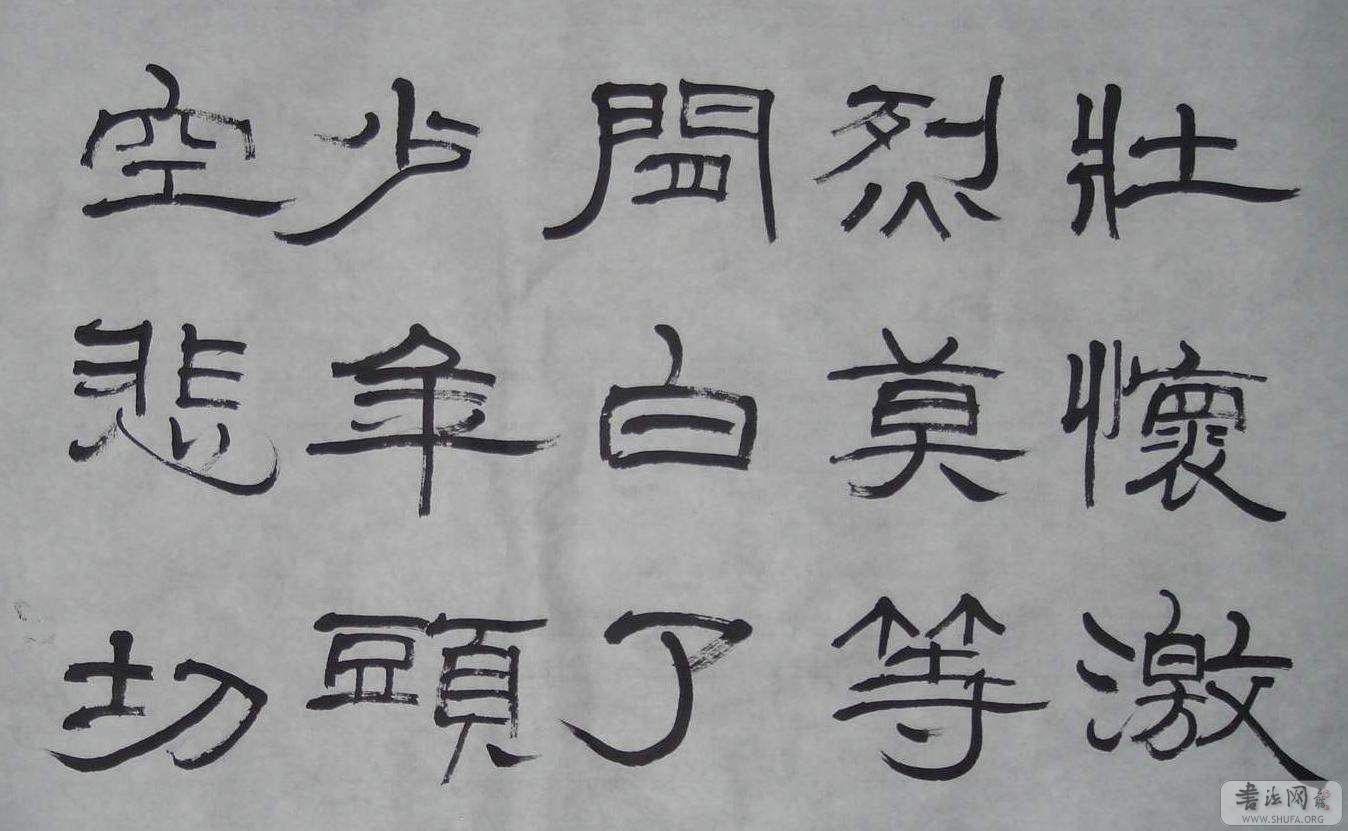 壯懷激
烈莫等
閒白了
少年頭
空悲切
书法网
WWW.SHUFA.ORG